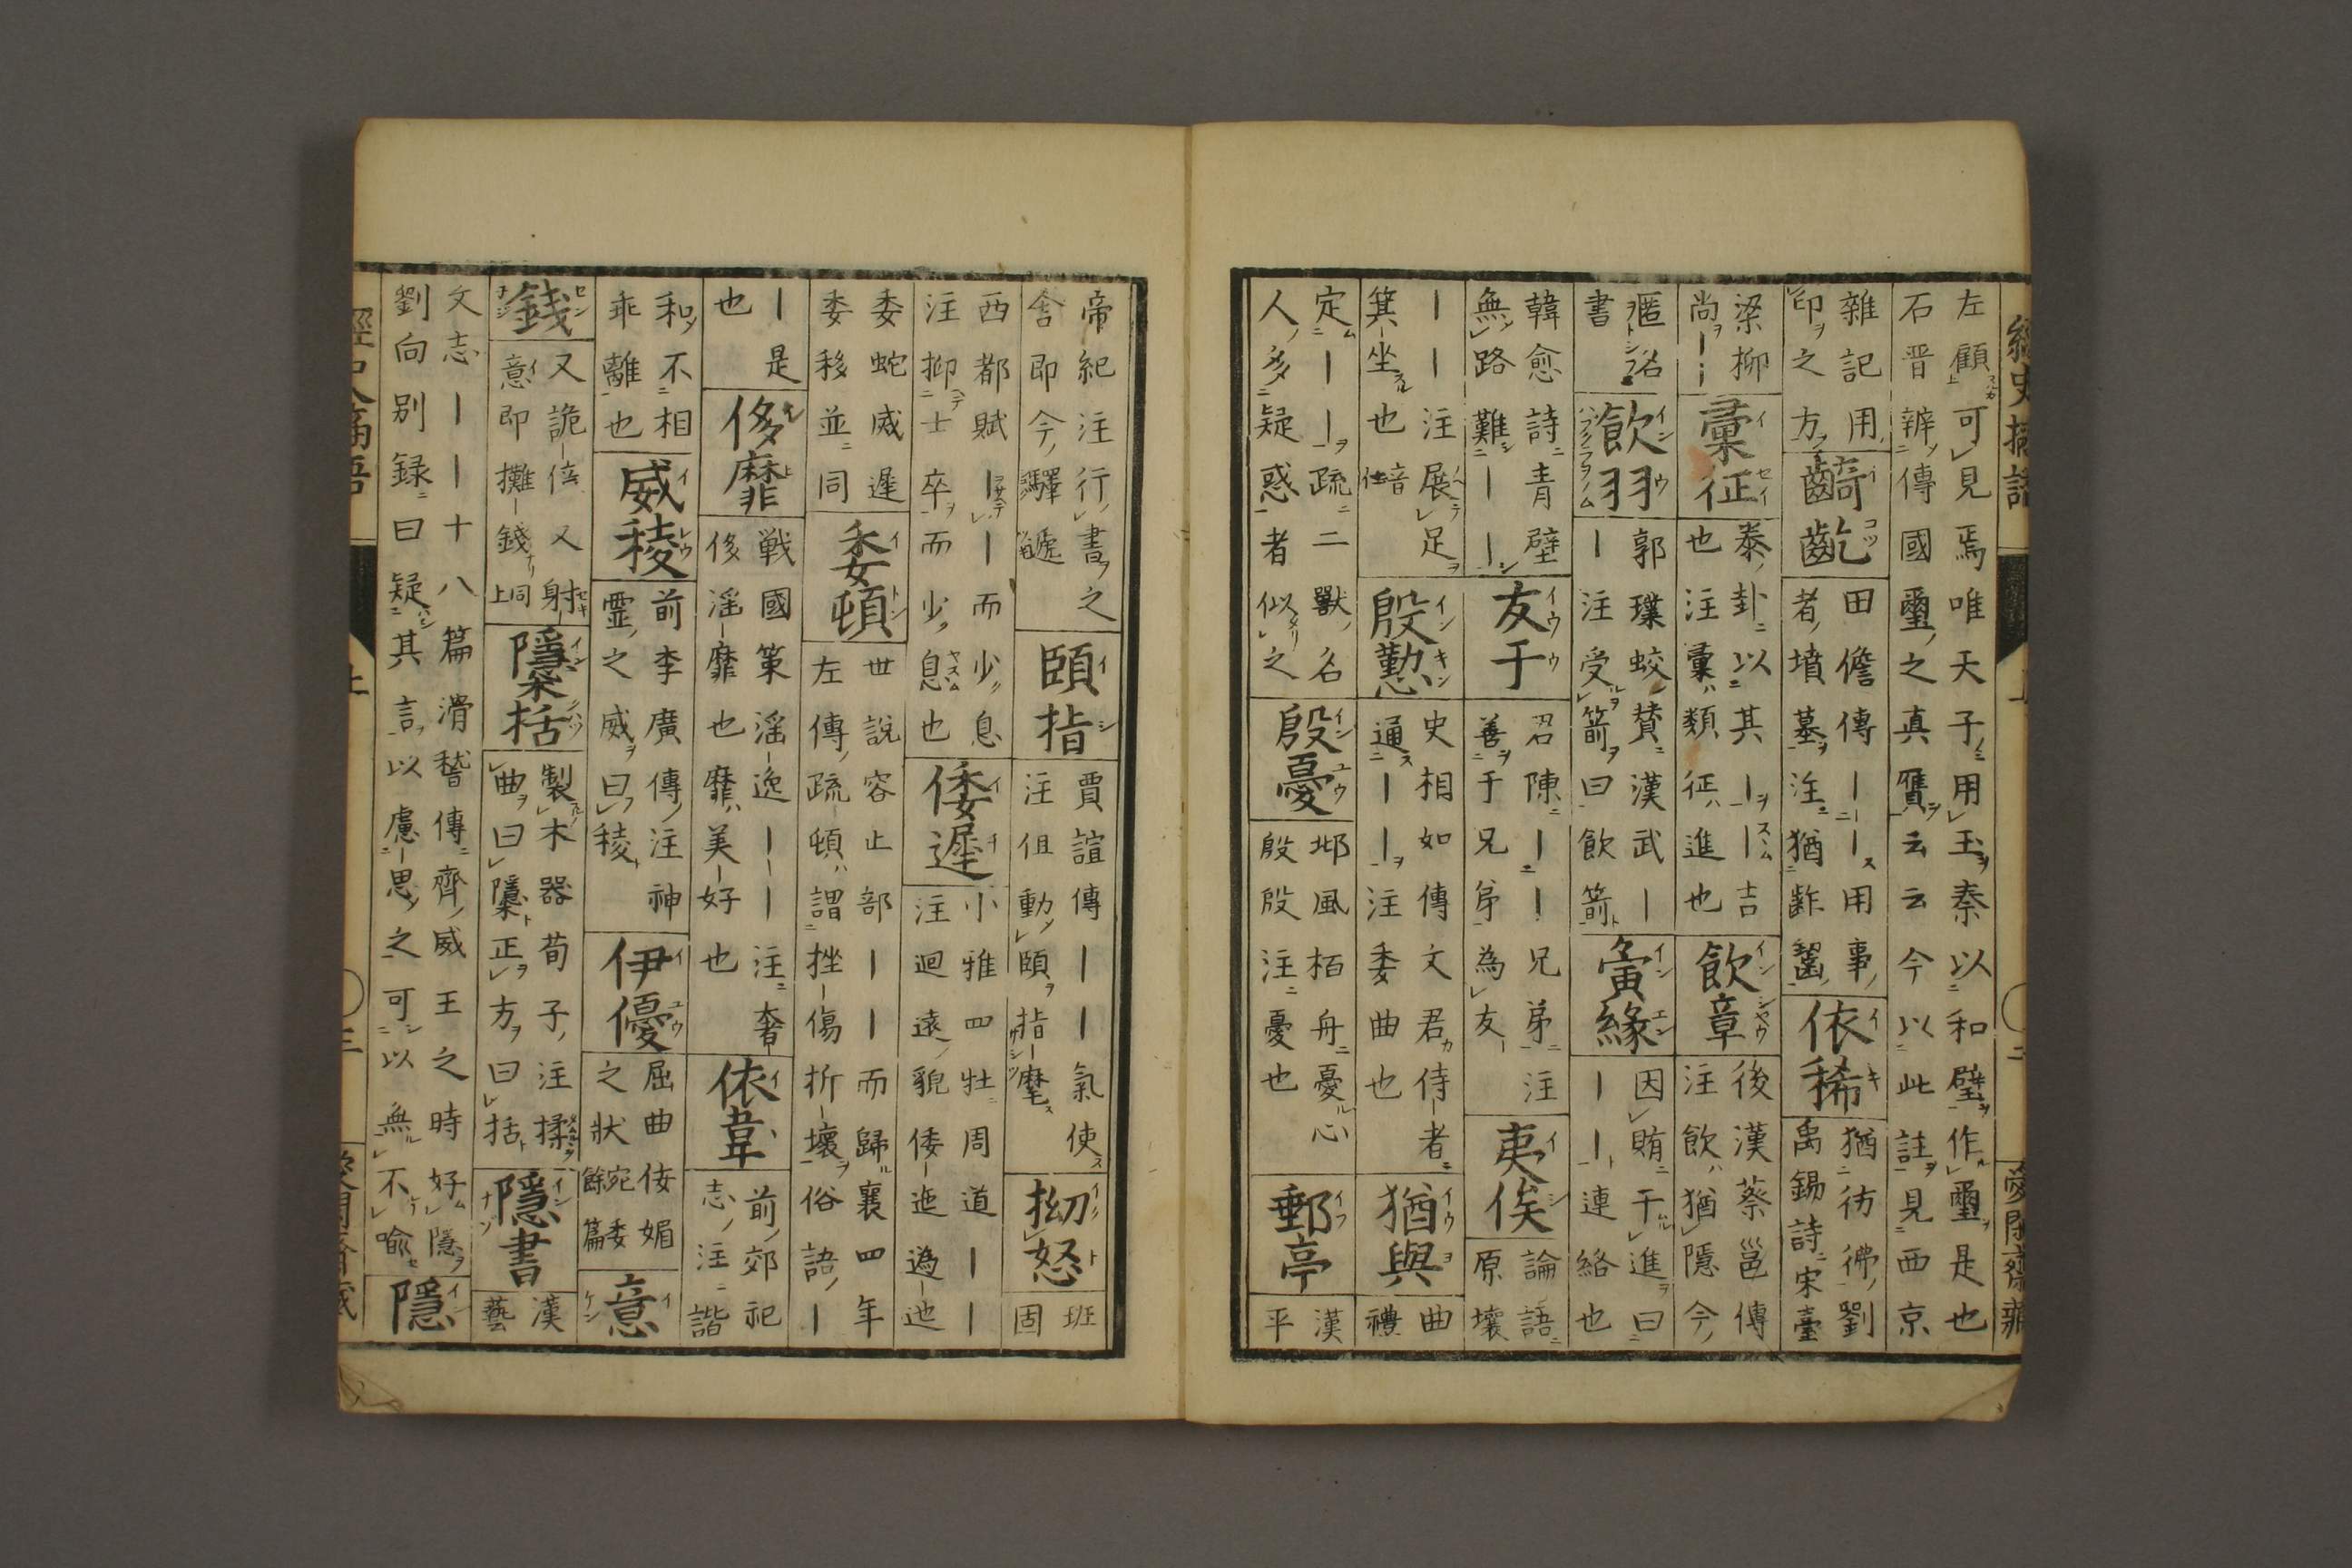 左顧可見焉唯天子用玉秦以和璧作璽是也
石晋辨傳國璽之真贋云云今以此註見西京
雜記用
印之方
齮齕
田儋傳｜｜用事
者墳墓注猶齚齧
依稀
猶彷彿劉
禹錫詩宋臺
梁柳
尚｜｜
彙征
泰卦以其｜｜吉
也注彙類征進也
飲章
後漢蔡邕傳
注飲猶隱今
匿名
書
飲羽
郭璞蛟賛漢武｜
｜注受箭曰飲箭
夤緣
因賄干進曰
｜｜連絡也
韓愈詩青壁
無路難｜｜
友于
君陳｜｜兄弟注
善于兄弟為友
夷俟
論語
原壤
｜｜注展足
箕坐也
殷懃
史相如傳文君侍者
通｜｜注委曲也
猶與
曲
禮
定｜｜疏二獸名
人多疑惑者似之
殷憂
邶風栢舟憂心
殷殷注憂也
郵亭
漢
平
帝紀注行書之
舍即今驛遞
頤指
賈誼傳｜｜氣使
注但動頤指麾
拗怒
班
固
西都賦｜｜而少息
注抑士卒而少息也
倭遲
小雅四牡周道｜｜
注迴遠貌倭迤為迆
委蛇威遲
委移並同
委頓
世說容止部｜｜而歸襄四年
左傳疏頓謂挫傷折壞俗語｜
｜是
也
侈靡
戦國策淫逸｜｜注奢
侈淫靡也靡美好也
依韋
前郊祀
志注諧
和不相
乖離也
威稜
前李廣傳注神
霊之威曰稜
伊優
屈曲佞媚
之狀
意
錢
又詭億又射
意即攤錢上同
隱括
製木器荀子注揉
曲曰隱正方曰括
隱書
漢
藝
文志｜｜十八篇滑稽傳齊威王之時好隱
劉向別録曰疑其言以慮思之可以無不喩
隱